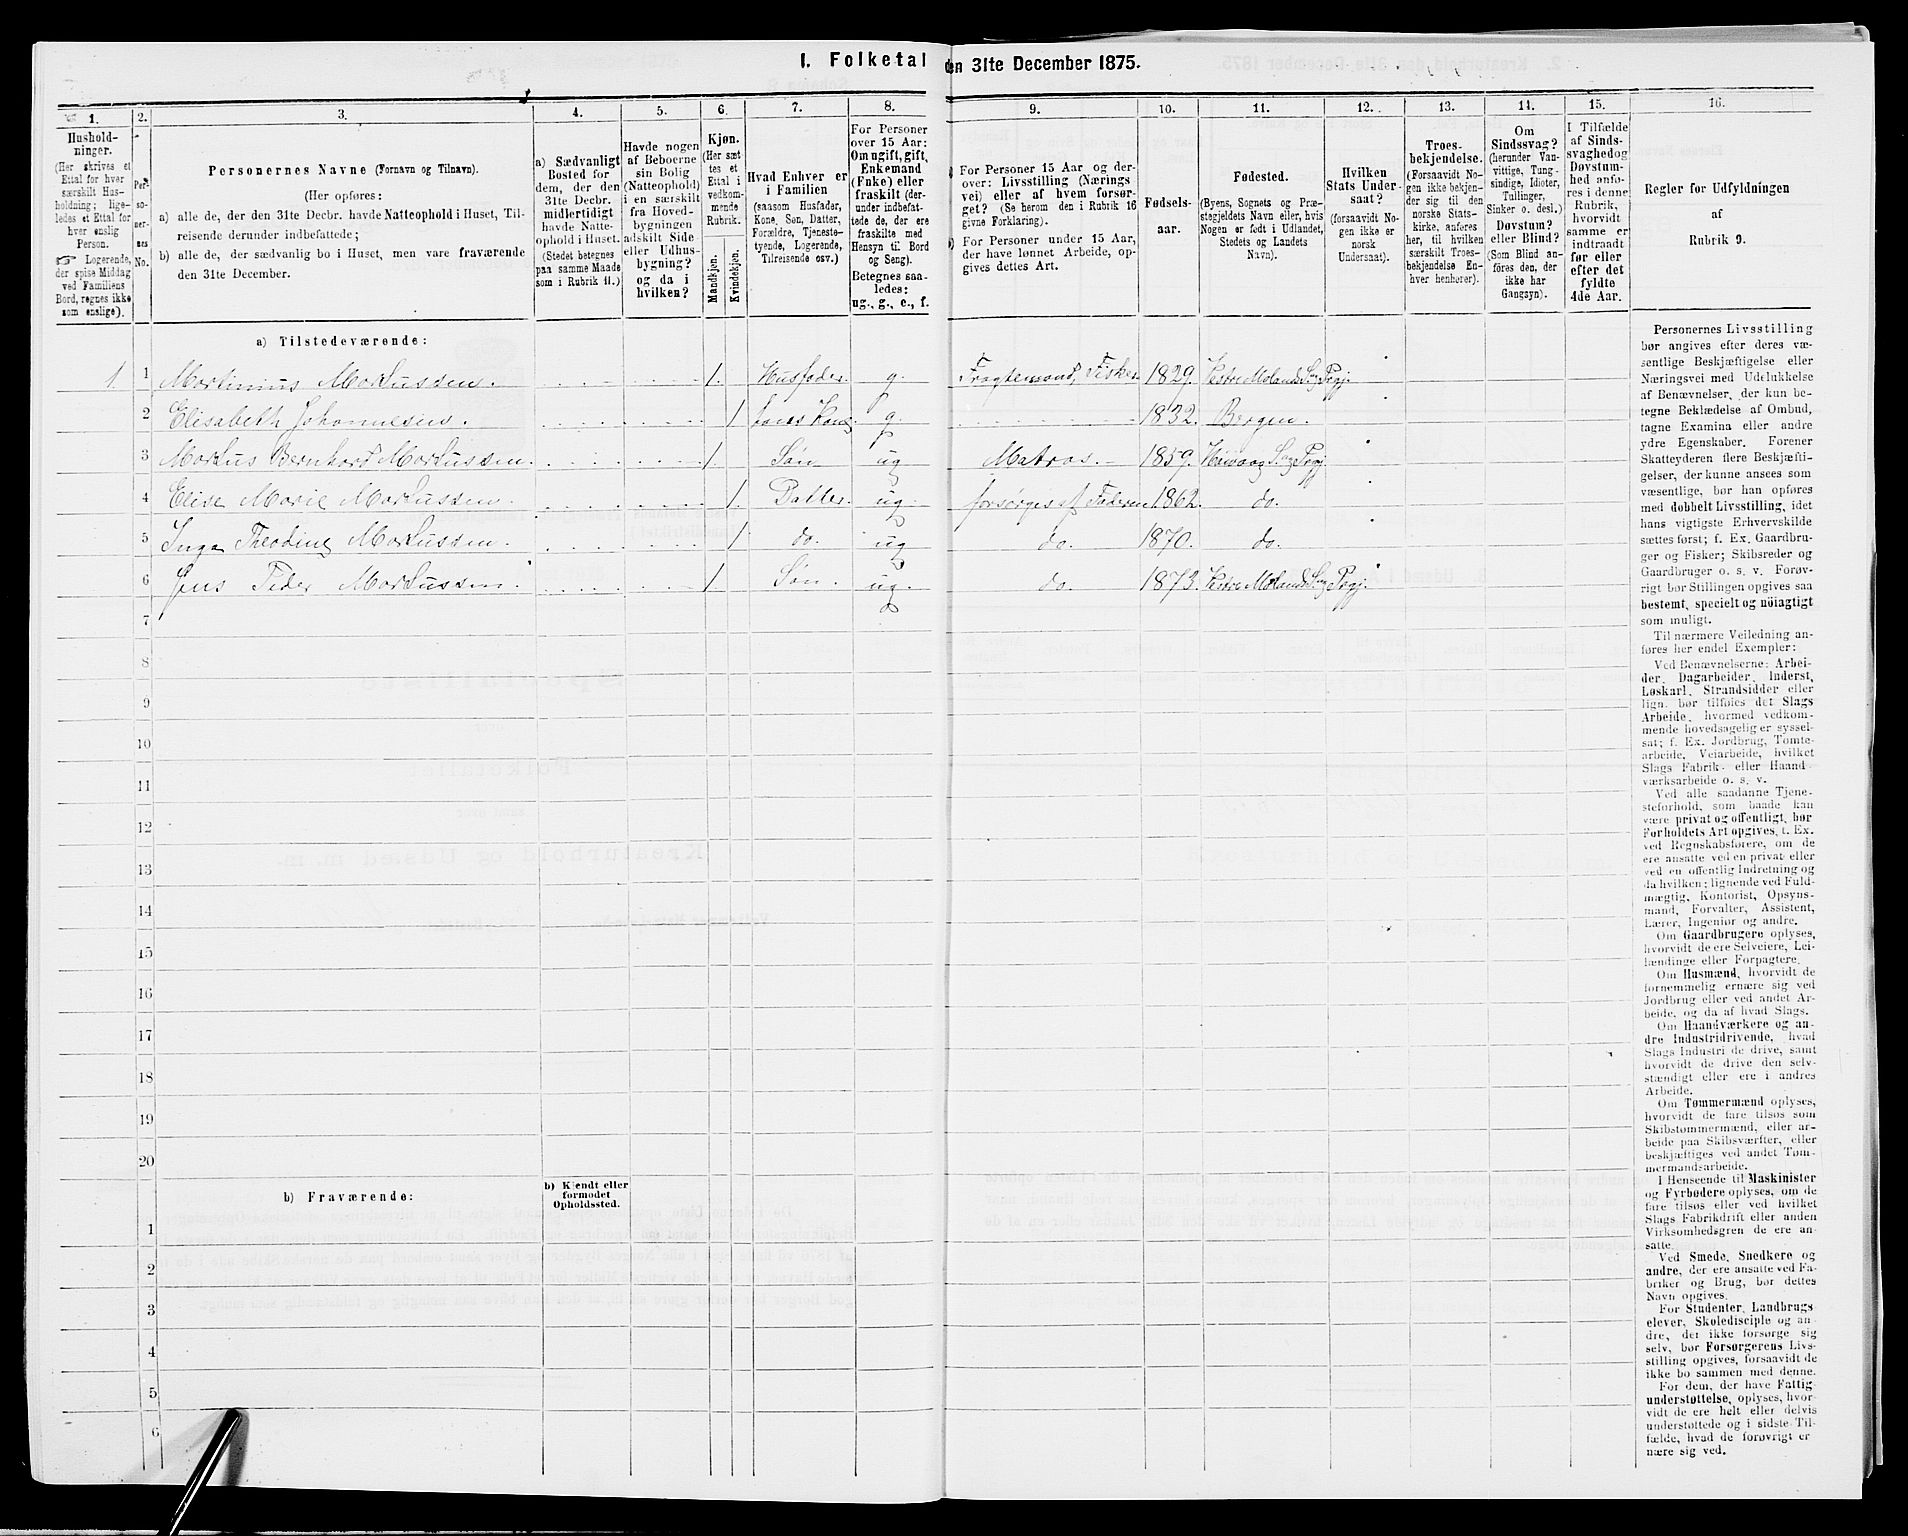 I. Folketal den 31te December 1875.
1.
2.
3.
4.
5.
6.
7.
8.
9.
10.
11.
12.
13.
14.
15.
16.
Hushold-
ninger.
(Her skrives et
Ettal for hver
særskilt Hus-
holdning; lige-
ledes et Ettal for
hver enslig
Person.
☞ Logerende,
der spise Middag
ved Familiens
Bord, regnes ikke
som enslige).
Per-
so-
ner-
nes
No.
Personernes Navne (Fornavn og Tilnavn).
(Her opføres:
a) alle de, der den 31te Decbr. havde Natteophold i Huset, Til-
reisende derunder indbefattede;
b) alle de, der sædvanlig bo i Huset, men vare fraværende
den 31te December.
a) Sædvanligt
Bosted for
dem, der den
31te Decbr.
midlertidigt
havde Natte-
ophold i Huset.
(Stedet betegnes
paa samme Maade
som i Rubrik 11.)
Havde nogen
af Beboerne
sin Bolig
(Natteophold)
i en særskilt
fra Hoved-
bygningen
adskilt Side-
eller Udhus-
bygning?
og da i
hvilken?
Kjøn.
(Her sæt-
tes et
Ettal i
vedkom-
mende
Rubrik.
Mandkjøn.
Kvindekjøn.
Hvad Enhver er
i Familien
(saasom Husfader,
Kone, Søn, Datter,
Forældre, Tjeneste-
tyende, Logerende,
Tilreisende osv.)
For Personer
over 15 Aar:
Om ugift, gift,
Enkemand
(Enke) eller
fraskilt (der-
under indbefat-
tede de, der ere
fraskilte med
Hensyn til Bord
og Seng).
Betegnes saa-
ledes:
ug., g., e., f.
a) For Personer 15 Aar og der-
over: Livsstilling (Nærings
vei) eller af hvem forsør-
get? (Se herom den i Rubrik 16
givne Forklaring).
b) For Personer under 15 Aar,
der have lønnet Arbeide, op-
gives dettes Art.
Fødsels-
aar.
Fødested.
(Byens, Sognets og Præ-
stegjeldets Navn eller, hvis
Nogen er født i Udlandet,
Stedets og Landets
Navn).
Hvilken
Stats Under-
saat?
(forsaavidt No-
gen ikke er
norsk
Undersaat).
Troes-
bekjendelse.
(Forsaavidt No-
gen ikke bekjen-
der sig til den
norske Stats-
kirke, anføres
her, til hvilken
særskilt Troes-
bekjendelse En-
hver henhører).
Om
Sindssvag?
(herunder Van-
vittige, Tung-
sindige, Idioter,
Tullinger,
Sinker o. desl.)
Døvstum?
eller Blind?
(Som Blind an-
føres den, der
ikke har
Gangsyn).
I Tilfælde
af Sinds-
svaghed og
Døvstum-
hed anfø-
res i denne
Rubrik,
hvorvidt
samme er
indtraadt
før eller
efter det
fyldte
4de Aar.
Regler for Udfyldningen
af
Rubrik 9.
a) Tilstedeværende:
1. 1 Martinius Markussen. 1. Husfader g. Fragtemand, Fisker 1829. Vestre Molands Sog Prgj.
2 Elisabeth Johannesen. 1 hans Kone g. 1832. Bergen.
3 Markus Bernhard Markussen. 1. Søn ug Matros. 1859. Høivaag Sog Prgj.
4 Elise Marie Markussen. 1. Datter. ug. forsørges af Faderen 1862. do.
5 Inga Theodine Markussen. 1 do. ug do. 1870. do.
6 Jens Peder Markussen. 1 Søn. ug. do. 1873. Vestre Molands Sog Prgj.
7
8
9
10
11
12
13
14
15
16
17
18
19
20
b) Fraværende:
b) Kjendt eller
formodet
Opholdssted.
1
2
3
4
5
6
Personernes Livsstilling
bør angives efter deres væ-
sentlige Beskjæftigelse eller
Næringsvei med Udelukkelse
af Benævnelser, der kun be-
tegne Beklædelse af Ombud,
tagne Examina eller andre
ydre Egenskaber. Forener
Skatteyderen flere Beskjæfti-
gelser, der kunne ansees som
væsentlige, bør han opføres
med dobbelt Livsstilling, idet
hans vigtigste Erhvervskilde
sættes først; f. Ex. Gaardbru-
ger og Fisker; Skibsreder og
Gaardbruger o. s. v. Forøv-
rigt bør Stillingen opgives saa
bestemt, specielt og nøiagtigt
som muligt.
Til nærmere Veiledning an-
føres her endel Exempler:
Ved Benævnelserne: Arbei-
der, Dagarbeider, Inderst,
Løskarl, Strandsidder eller
lign. bør tilføies det Slags
Arbeide, hvormed vedkom-
mende hovedsagelig er syssel-
sat; f. Ex. Jordbrug, Tomte-
arbeide, Veiarbeide, hvilket
Slags Fabrik- eller Haand-
værksarbeide o. s. v.
Ved alle saadanne Tjene-
steforhold, som baade kan
være privat og offentligt, bør
Forholdets Art opgives, t. Ex.
ved Regnskabsførere, om de
ere ansatte ved en privat eller
ved en offentlig Indretning og
da hvilken; lignende ved Fuld-
mægtig, Kontorist, Opsyns-
mand, Forvalter, Assistent,
Lærer, Ingeniør og andre.
Om Gaardbrugere oplyses,
hvorvidt de ere Selveiere, Lei-
lændinge eller Forpagtere.
Om Husmænd, hvorvidt de
fornemmelig ernære sig ved
Jordbrug eller ved andet Ar-
beide, og da af hvad Slags.
Om Haandværkere og an-
dre Industridrivende, hvad
Slags Industri de drive, samt
hvorvidt de drive den selv-
stændigt eller ere i andres
Arbeide.
Om Tømmermænd oplyses,
hvorvidt de fare tilsøs som
Skibstømmermænd, eller ar-
beide paa Skibsværfter, eller
beskjæftiges ved andet Tøm-
mermandsarbeide.
I Henseende til Maskinister
og Fyrbødere oplyses, om de
fare tilsøs eller ved hvilket
Slags Fabrikdrift eller anden
Virksomhedsgren de ere an-
satte.
Ved Smede, Snedkere og
andre, der ere ansatte ved Fa-
briker og Brug, bør dettes
Navn opgives.
For Studenter, Landbrugs-
elever, Skoledisciple og an-
dre, der ikke forsørge sig
selv, bør Forsørgerens Livs-
stilling opgives, forsaavidt de
ikke bo sammen med denne.
For dem, der have Fattig-
understøttelse, oplyses, hvor-
vidt de ere helt eller delvis
understøttede og i sidste Til-
fælde, hvad de forøvrigt er-
nære sig ved.